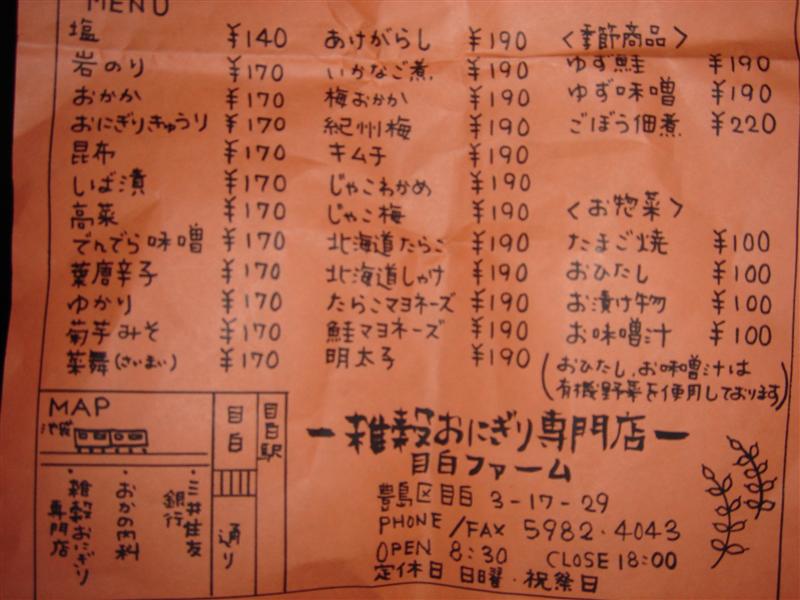 MENU
塩 ¥140
岩のり ¥170
おかか ¥170
おにぎりきゅうり ¥170
昆布 ¥170
いば漬 ¥170
高菜 ¥170
でんでら味噌 ¥170
葉唐辛子 ¥170
ゆかり ¥170
菊芋みそ ¥170
菜舞(さいまい) ¥170
あけがらし ¥190
いかなご煮 ¥190
梅おかか ¥190
紀州梅 ¥190
キムチ ¥190
じゃこわかめ ¥190
じゃこ梅 ¥190
北海道たらこ ¥190
北海道しゃけ ¥190
たらこマヨネーズ ¥190
鮭マヨネーズ ¥190
明太子 ¥190
〈季節商品〉
ゆず鮭 ¥190
ゆず味噌 ¥190
ごぼう佃煮 ¥220
〈お惣菜〉
たまご焼 ¥100
おひたし ¥100
お漬け物 ¥100
お味噌汁 ¥100
(おひたし、お味噌汁は
有機野菜を使用しております)
MAP
池袋
目白
目白駅
通り
・三井住友
銀行
・おかの内科
・雑穀おにぎり
専門店
ー雑穀おにぎり専門店ー
目白ファーム
豊島区目白 3-17-29
PHONE/FAX 5982・4043
OPEN 8:30 CLOSE 18:00
定休日 日曜・祝祭日